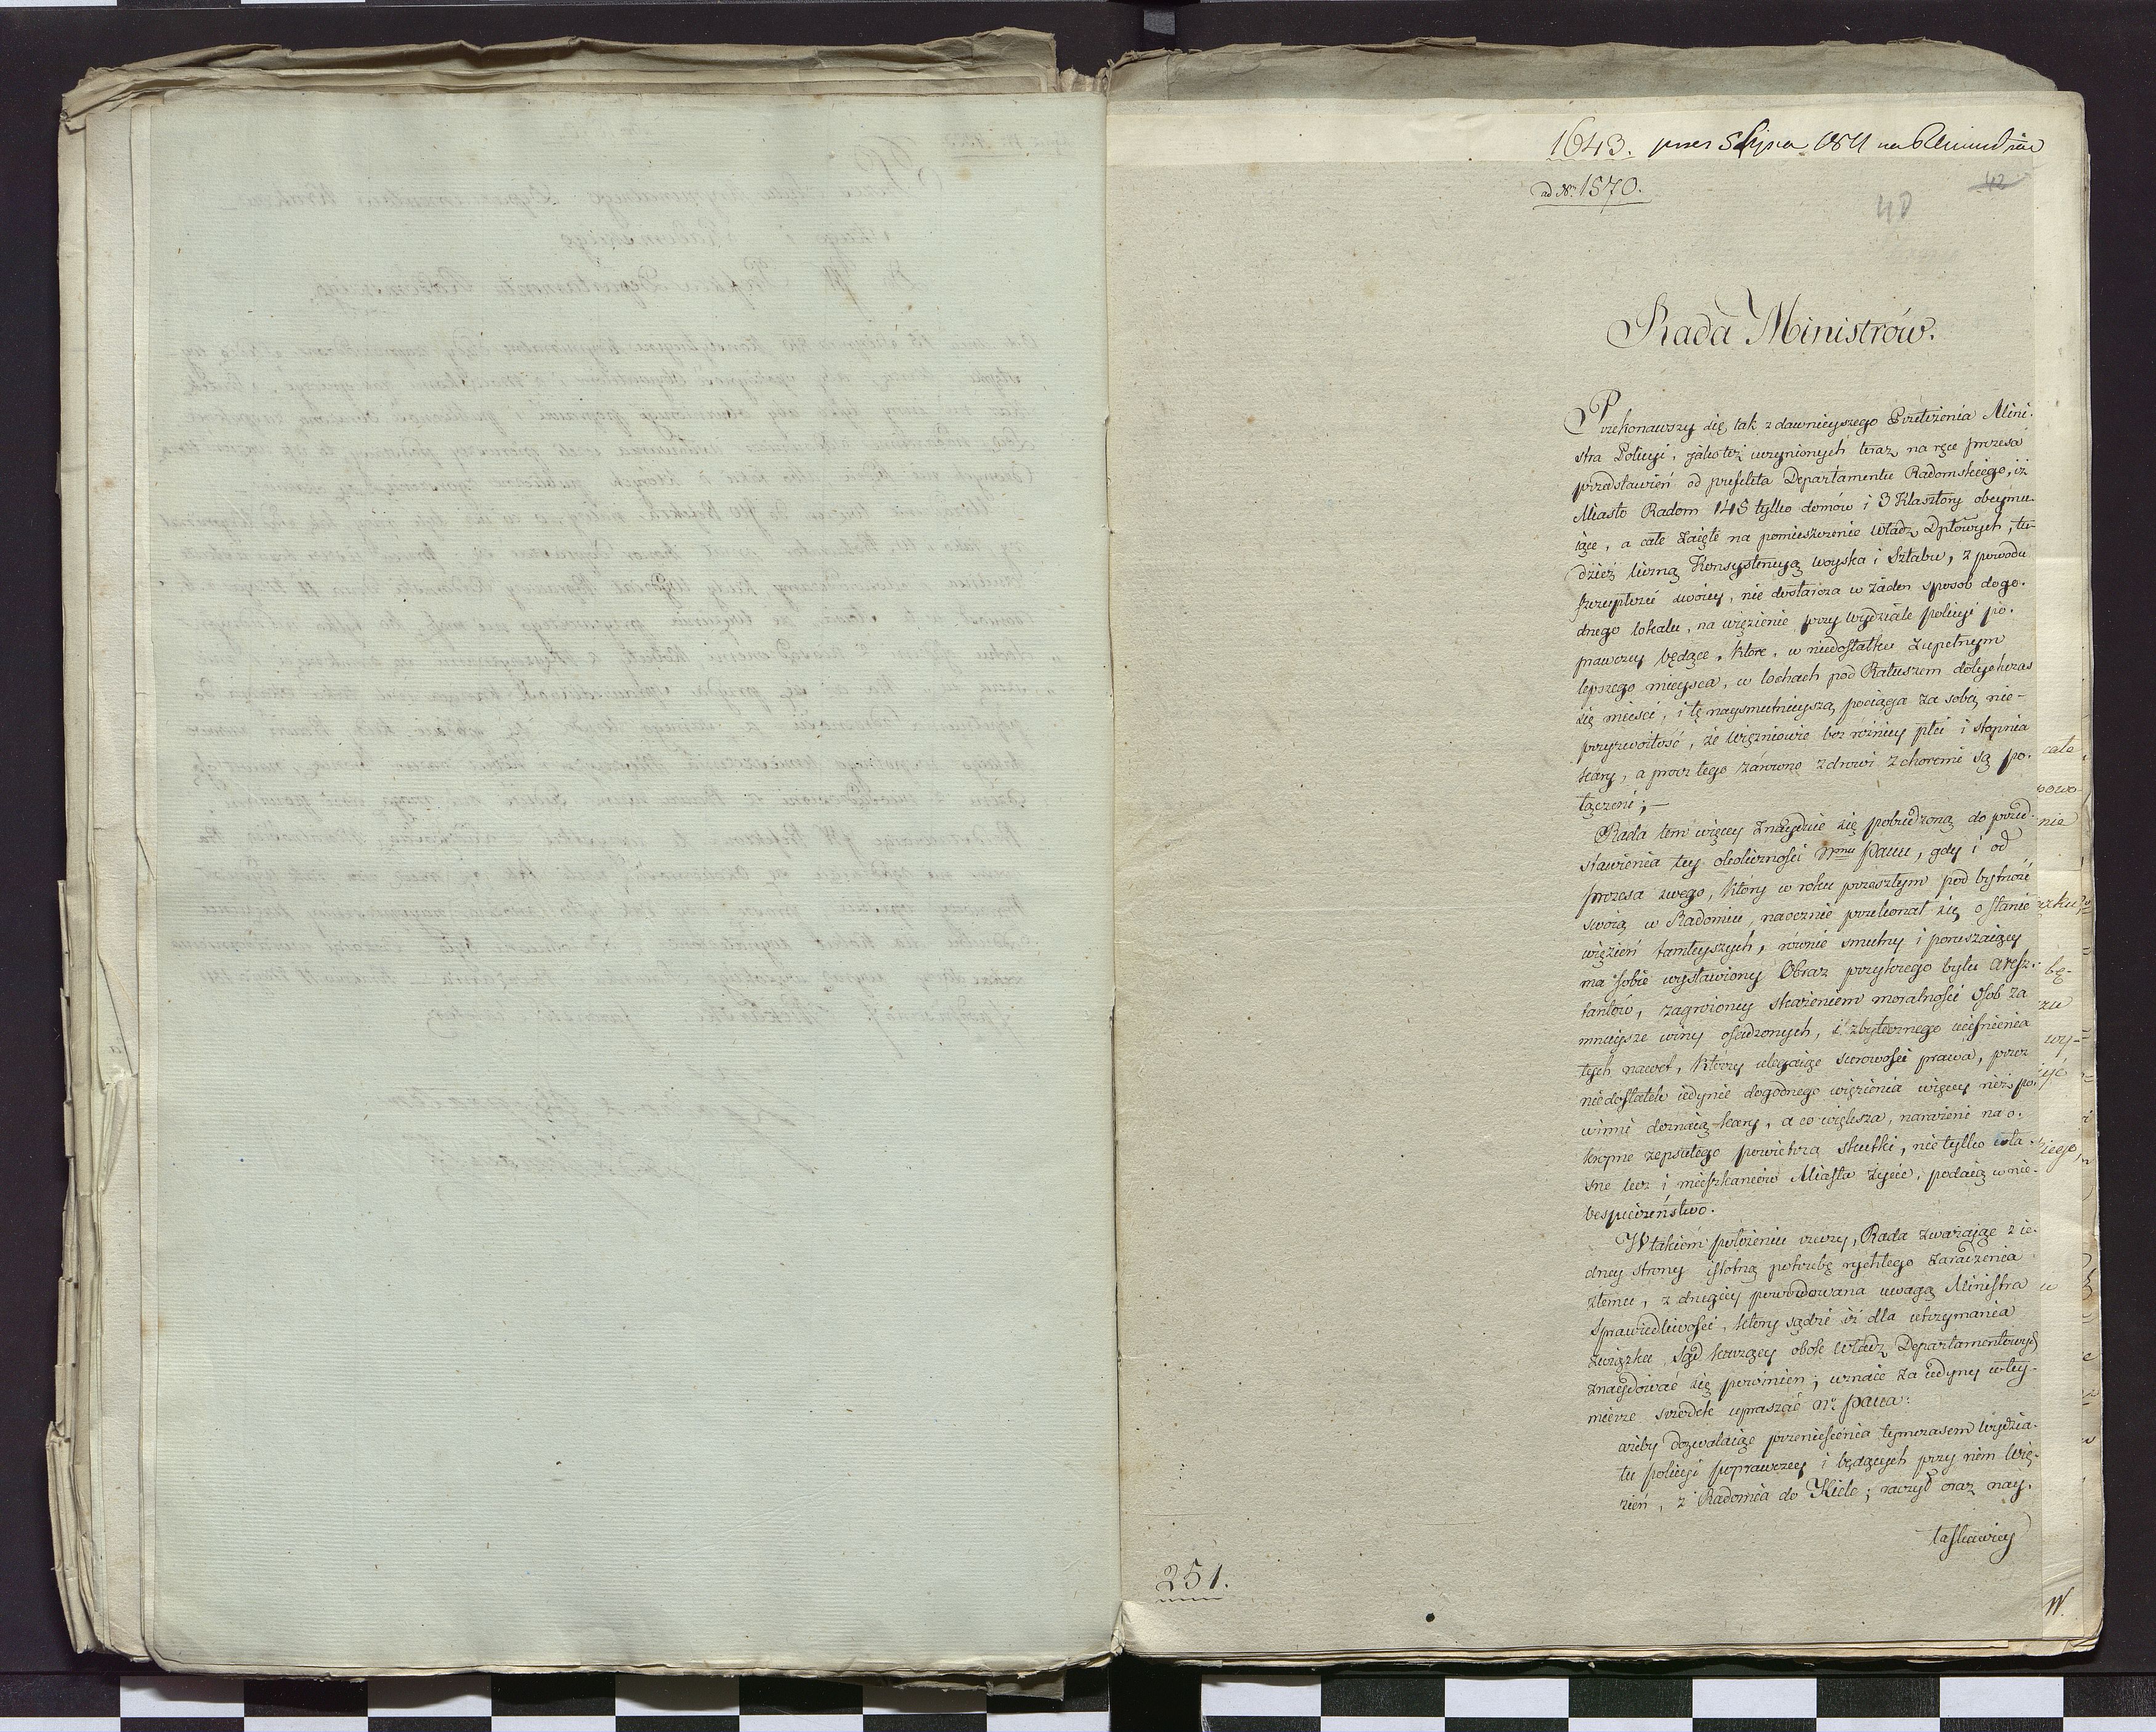 1643. pres 5 Lipca 1811
ad Nr 1570.
42
40
Rada Ministrów.
Przekonawszy się tak z dawnieyszego Przełożenia Mini-
stra Policyi, jako też uczynionych teraz na ręce prezesa
przedstawień od prefekta Departamentu Radomskiego, iż
Miasto Radom 145 tylko domów i 3 Klasztory obeymu-
iące, a całe zaięte na pomieszczenie Władz Dpłowych, tu-
dzież liczną Konsystencyą woyska i Sztabu, z powodu
szczupłości swoiey, nie dostarcza w żaden sposob dogo-
dnego lokalu, na więzienie przy wydziale policyi po-
prawczey będące, które, w niedostatku zupełnym
lepszego mieysca, w lochach pod Ratuszem dotychczas
się mieści, i tę naysmutnieyszą pociąga za sobą nie-
przyzwoitość, że więzniowie bez różnicy płci i stopnia
kary, a procz tego zarówno zdrowi z choremi są po-
łączeni;—
Rada tem więcey znayduie się pobudzoną do przed-
stawienia tey okoliczności Nmu Panu, gdy i od
prezesa swego, który w roku przeszłym pod bytność
swoią w Radomiu, naocznie przekonał się o stanie
więzień tamteyszych, równie smutny i poruszaiący
ma sobie wystawiony Obraz przykrego bytu aresz-
tantów, zagrożoney skażeniem moralności Osob za
mnieysze winy osadzonych, i zbytecznego uciśnienia
tych nawet, którzy ulegaiąc surowości prawa, przez
niedostatek iedynie dogodnego więzienia więcey niż po-
winni doznaią kary, a co większa, narażeni na o-
kropne zepsutego powietrza skutki, nie tylko wła-
sne lecz i mieszkańców Miasta życie, podaią w nie-
bespieczeństwo.
W takiém położeniu rzeczy, Rada zważaiąc z ie-
dney strony istotną potrzebę rychłego zaradzenia
złemu, z drugiey powodowana uwagą Ministra
Sprawiedliwości, który sądzi iż dla utrzymania
związku Sąd karzący obok Władz Departamentowych
znaydować się powinien; uznaie za iedyny w tey-
mierze srzodek upraszać Nr Pana:
ażeby dozwalaiąc przeniesienia tymczasem wydzia-
łu policyi poprawczey i będących przy nim Wię-
zień, z Radomia do Kielc; raczył oraz nay-
łaskawiey
251.